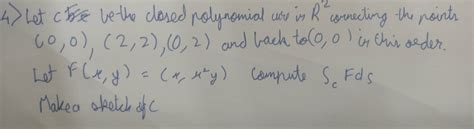 4) Let C be the closed polynomial in R² connecting the points
(0,0), (2,2), (0,2) and back to (0,0) in this order.
Let F(x,y) = (x, x²y) compute ∫_c Fds
Make a sketch of C